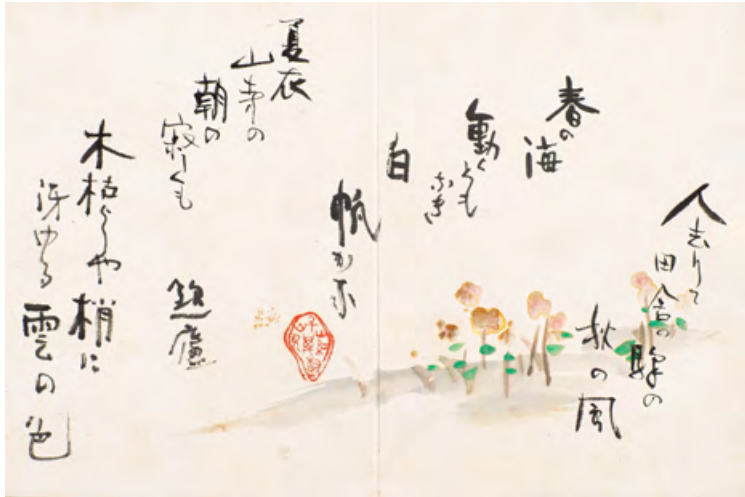 人去りて
田舎の驛の
秋の風
春の
海
動くとも
なき
白
帆かな
夏衣
山寺の
朝の
寂しくも
木枯らしや梢に
冴ゆる雲の色